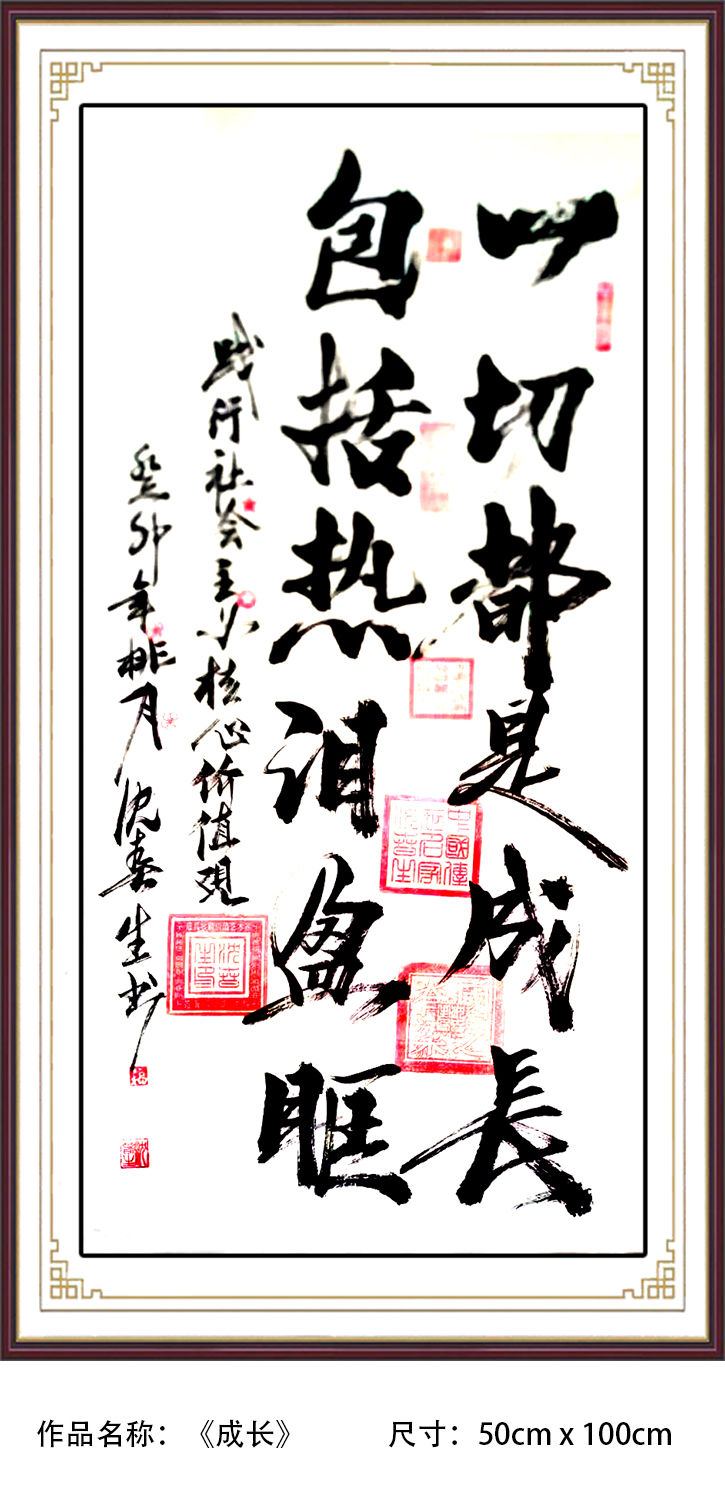 一切都是成长
包括热泪盈眶
践行社会主义核心价值观
癸卯年桃月沈春生书
中国传
作品名称：《成长》 尺寸：50cm x 100cm